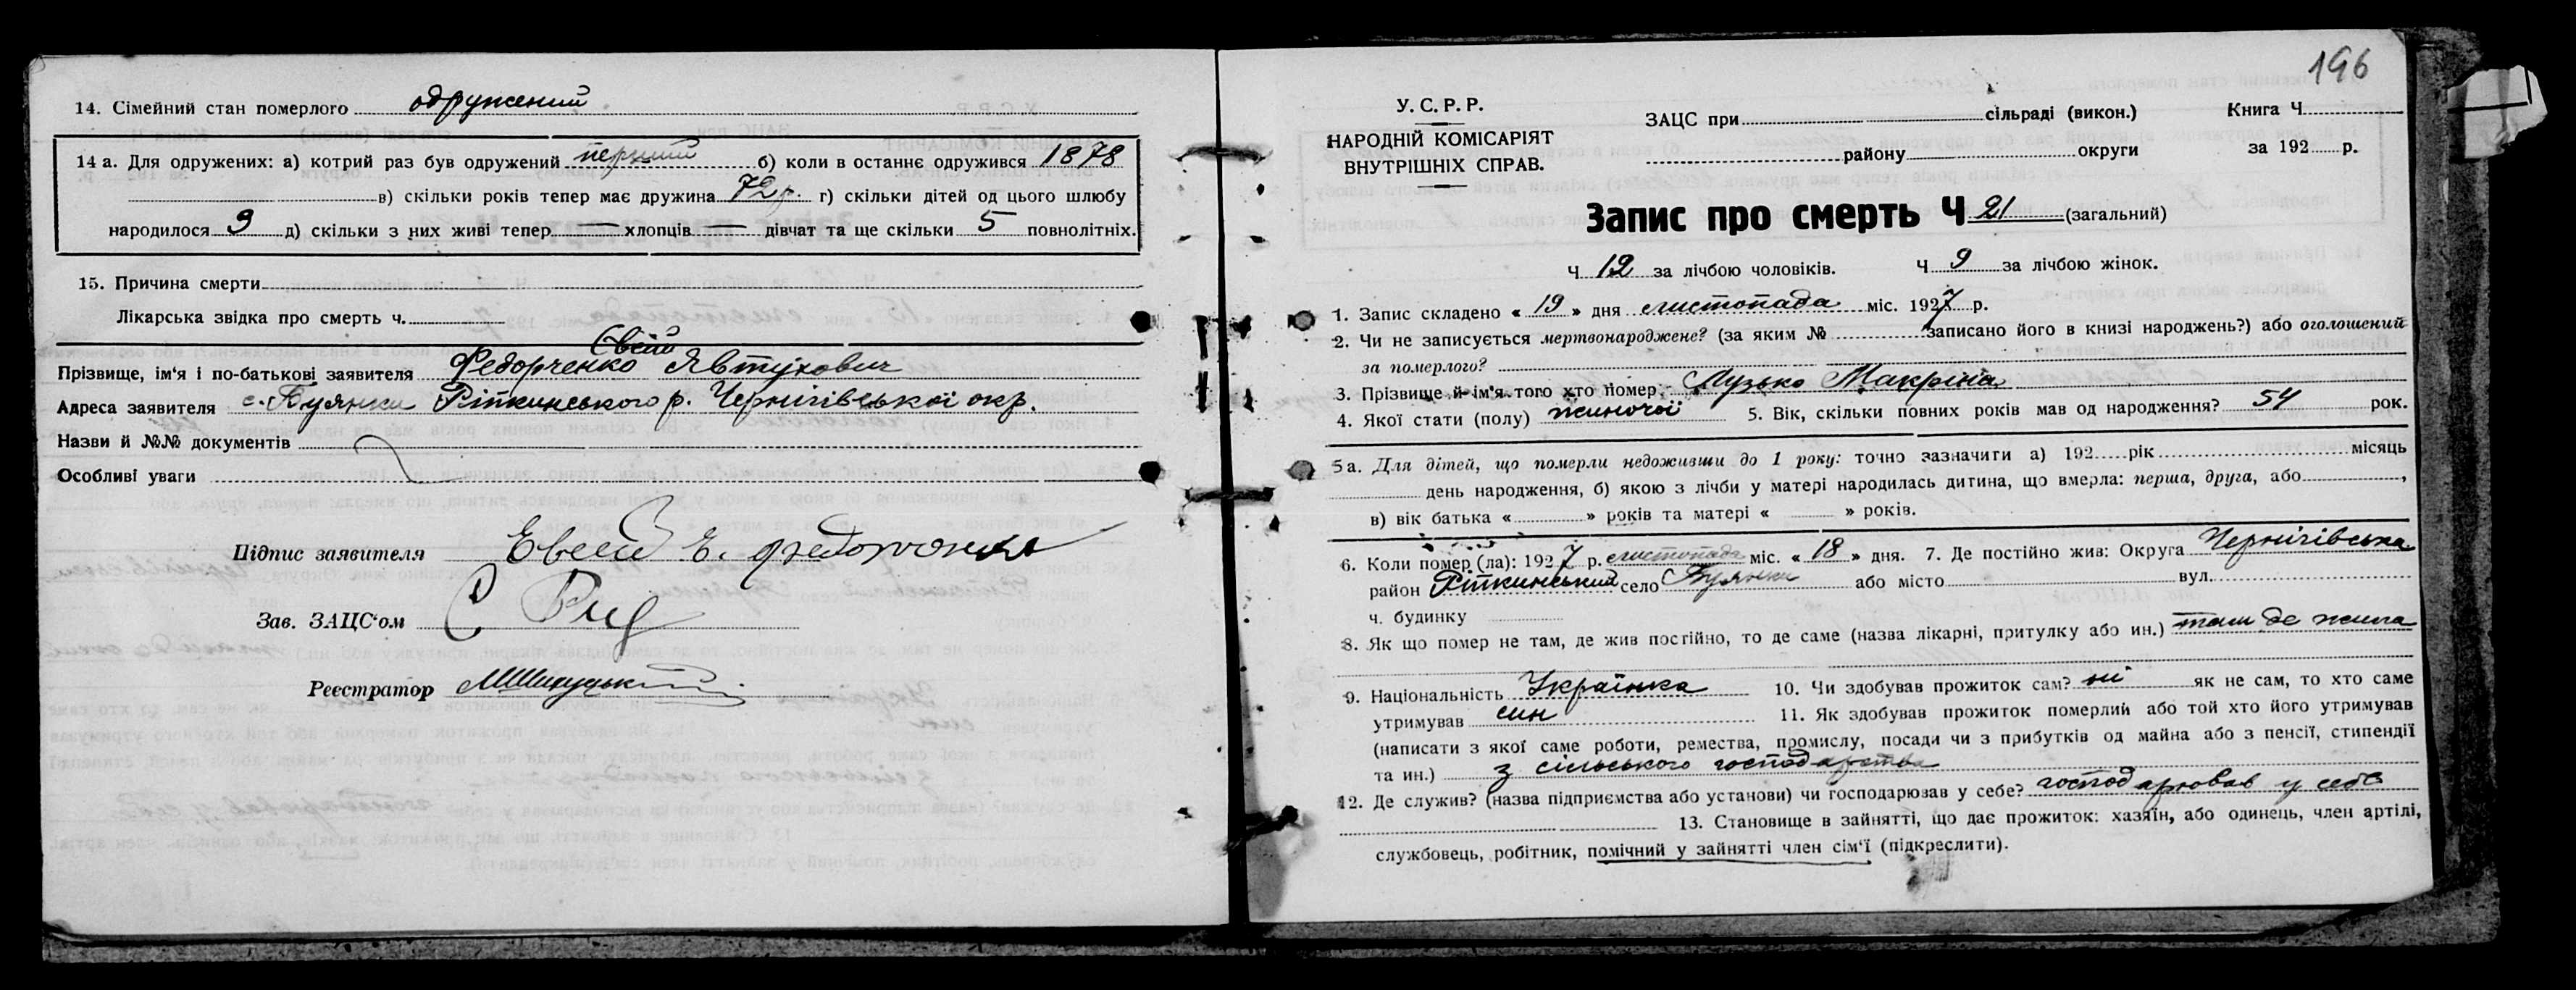 14. Сімейний стан померлого одружений
14 а. Для одружених: а) котрий раз був одружений перший б) коли в останнє одружився 1878
в) скільки років тепер має дружина 72 р. г) скільки дітей од цього шлюбу
народилося 9 д) скільки з них живі тепер — хлопців — дівчат та ще скільки 5 повнолітніх.
15. Причина смерти
Лікарська звідка про смерть ч.
Євсій
Прізвище, ім'я і по-батькові заявителя Федорченко Явтухович
Адреса заявителя с. Буянки Ріпкинського р. Чернігівської окр.
Назви й №№ документів
Особливі уваги
Підпис заявителя Евсей Е. Федорченко
Зав. ЗАЦС'ом
Реєстратор
196
У. С. Р. Р.
НАРОДНІЙ КОМІСАРІЯТ
ВНУТРІШНІХ СПРАВ.
ЗАЦС при сільраді (викон.) Книга Ч
району округи за 192 р.
Запис про смерть Ч 21 (загальний)
Ч 12 за лічбою чоловіків. Ч 9 за лічбою жінок.
1. Запис складено « 19 » дня листопада міс. 1927 р.
2. Чи не записується мертвонароджене? (за яким № записано його в книзі народжень?) або оголошений
за померлого?
3. Прізвище й ім'я того хто помер Лузько Макріна
4. Якої стати (полу) жиночої 5. Вік, скільки повних років мав од народження? 54 рок.
5а. Для дітей, що померли недоживши до 1 року: точно зазначити а) 192 рік місяць
день народження, б) якою з лічби у матері народилась дитина, що вмерла: перша, друга, або ,
в) вік батька « » років та матері « » років.
6. Коли помер (ла): 1927 р. листопада міс. « 18 » дня. 7. Де постійно жив: Округа Чернігівська
район Ріпкинський село Буянки або місто вул.
ч. будинку
8. Як що помер не там, де жив постійно, то де саме (назва лікарні, притулку або ин.) там де жила
9. Національність Українка 10. Чи здобував прожиток сам? ні як не сам, то хто саме
утримував син 11. Як здобував прожиток померлий або той хто його утримував
(написати з якої саме роботи, ремества, промислу, посади чи з прибутків од майна або з пенсії, стипендії
та ин.) з сільського господарства
12. Де служив? (назва підприємства або установи) чи господарював у себе? господарював у себе
13. Становище в зайнятті, що дає прожиток: хазяїн, або одинець, член артілі,
службовець, робітник, помічний у зайнятті член сім'ї (підкреслити).